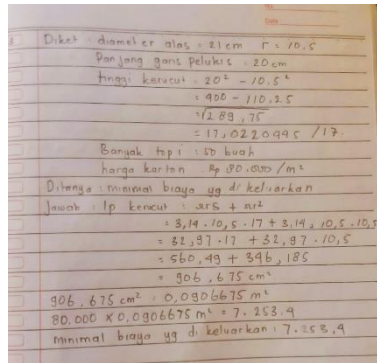 Diket : diameter alas = 21 cm r = 10,5
Panjang garis pelukis = 20 cm
tinggi kerucut = 20² - 10,5²
= 400 - 110,25
= √289,75
= 17,0220445 / 17.
Banyak topi : 50 buah
harga karton Rp 80.000 / m²
Ditanya : minimal biaya yg di keluarkan
Jawab : lp kerucut : πrs + πr²
= 3,14 . 10,5 . 17 + 3,14 . 10,5 . 10,5
= 32,97 . 17 + 32,97 . 10,5
= 560,49 + 346,185
= 906,675 cm²
906,675 cm² = 0,0906675 m²
80.000 X 0,0906675 m² = 7.253.4
minimal biaya yg di keluarkan : 7.253,4